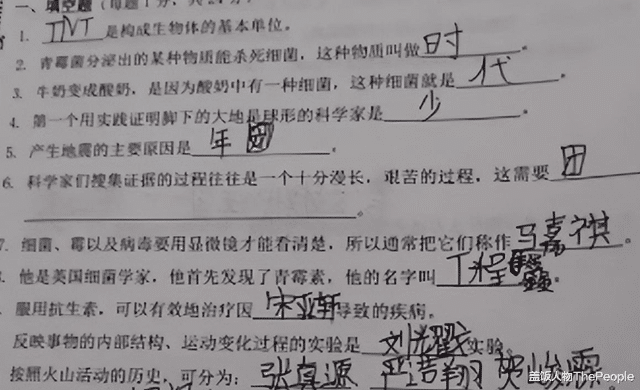 一、填空题（每题1分，共24分）
1. TNT 是构成生物体的基本单位。
2. 青霉菌分泌出的某种物质能杀死细菌，这种物质叫做时。
3. 牛奶变成酸奶，是因为酸奶中有一种细菌，这种细菌就是代。
4. 第一个用实践证明脚下的大地是球形的科学家是少。
5. 产生地震的主要原因是年团。
6. 科学家们搜集证据的过程往往是一个十分漫长，艰苦的过程，这需要团
。
7. 细菌、霉以及病毒要用显微镜才能看清楚，所以通常把它们称作马嘉祺。
他是美国细菌学家，他首先发现了青霉素，他的名字叫丁程鑫。
服用抗生素，可以有效地治疗因宋亚轩导致的疾病。
反映事物的内部结构、运动变化过程的实验是刘耀文实验。
按照火山活动的历史，可分为：张真源 严浩翔
盖饭人物ThePeople